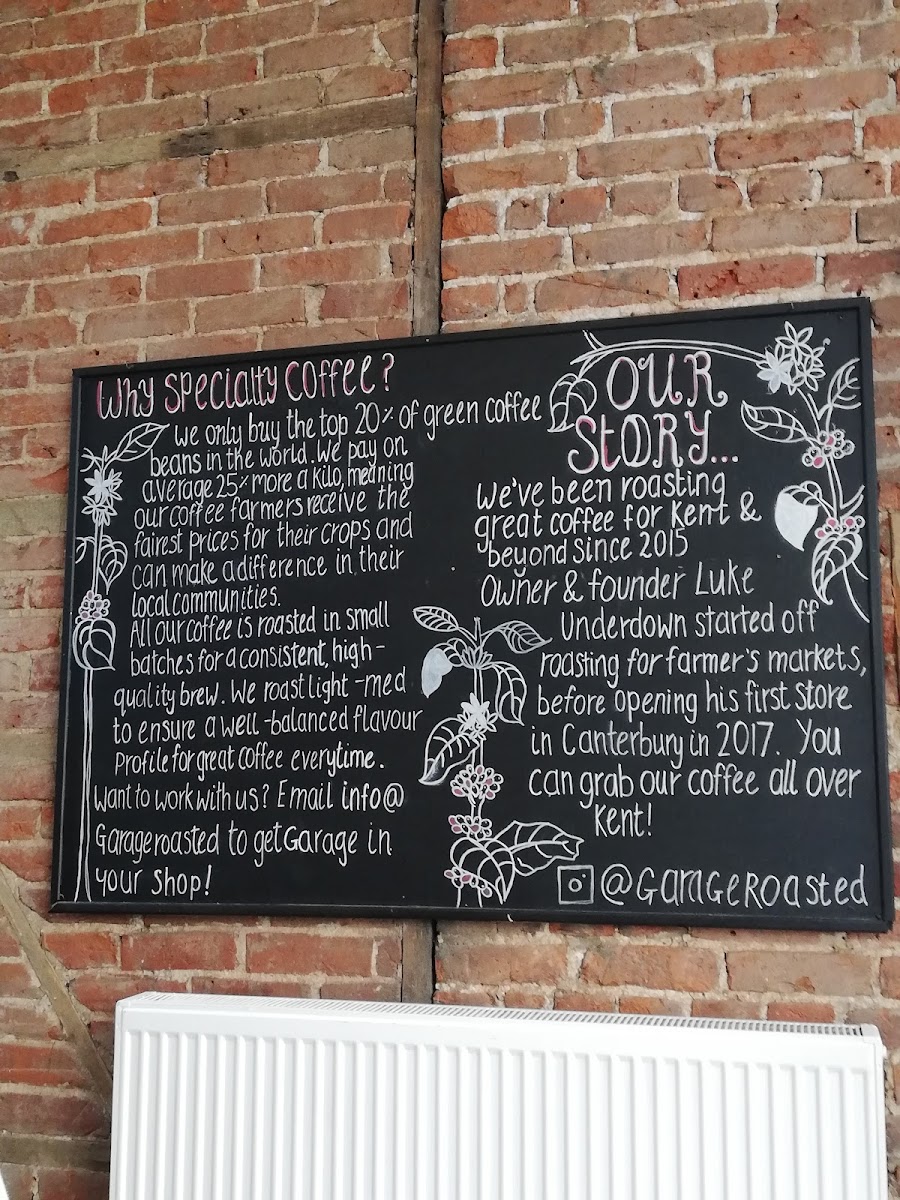 Why Specialty Coffee?
We only buy the top 20% of green coffee
beans in the world. We pay on
average 25% more a kilo, meaning
our coffee farmers receive the
fairest prices for their crops and
can make a difference in their
local communities.
All our coffee is roasted in small
batches for a consistent, high-
quality brew. We roast light-med
to ensure a well-balanced flavour
profile for great coffee everytime.
Want to work with us? Email info@
Garageroasted to get Garage in
your shop!
OUR
STORY...
We've been roasting
great coffee for Kent &
beyond since 2015
Owner & founder Luke
Underdown started off
roasting for farmer's markets,
before opening his first store
in Canterbury in 2017. You
can grab our coffee all over
Kent!
@GARAGEROASTED